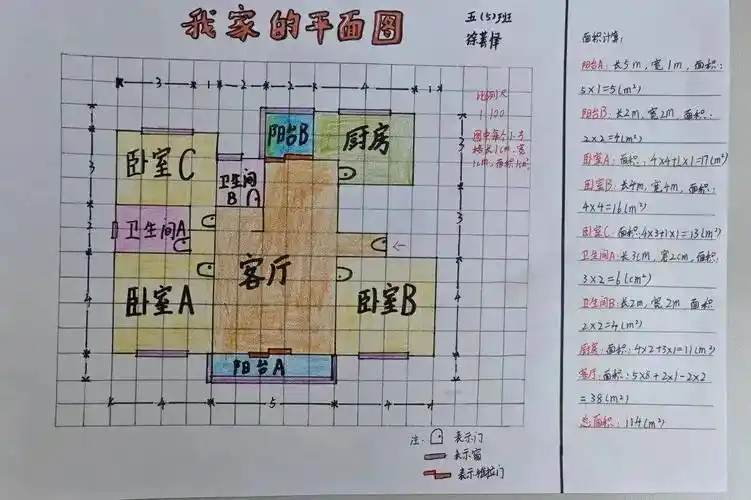 我家的平面图
五(5)班
徐
比例尺
1:100
图中每个小方
格长1cm,宽
1cm,面积1cm²
3 1 2 2 4 1
阳台B
厨房
卧室C
卫生间
B
3
3
卫生间A
2
3
客厅
卧室A
卧室B
4
4
阳台A
4 5 4 1
注: 表示门
表示窗
表示推拉门
面积计算:
阳台A:长5m,宽1m,面积:
5×1=5(m²)
阳台B:长2m,宽2m,面积:
2×2=4(m²)
卧室A:面积:4×4+1×1=17(m²)
卧室B:长4m,宽4m,面积:
4×4=16(m²)
卧室C:面积:4×3+1×1=13(m²)
卫生间A:长3cm,宽2cm,面积:
3×2=6(cm²)
卫生间B:长2m,宽2m 面积:
2×2=4(m²)
厨房:面积:4×2+3×1=11(m²)
客厅:面积:5×8+2×1-2×2
=38(m²)
总面积:114(m²)